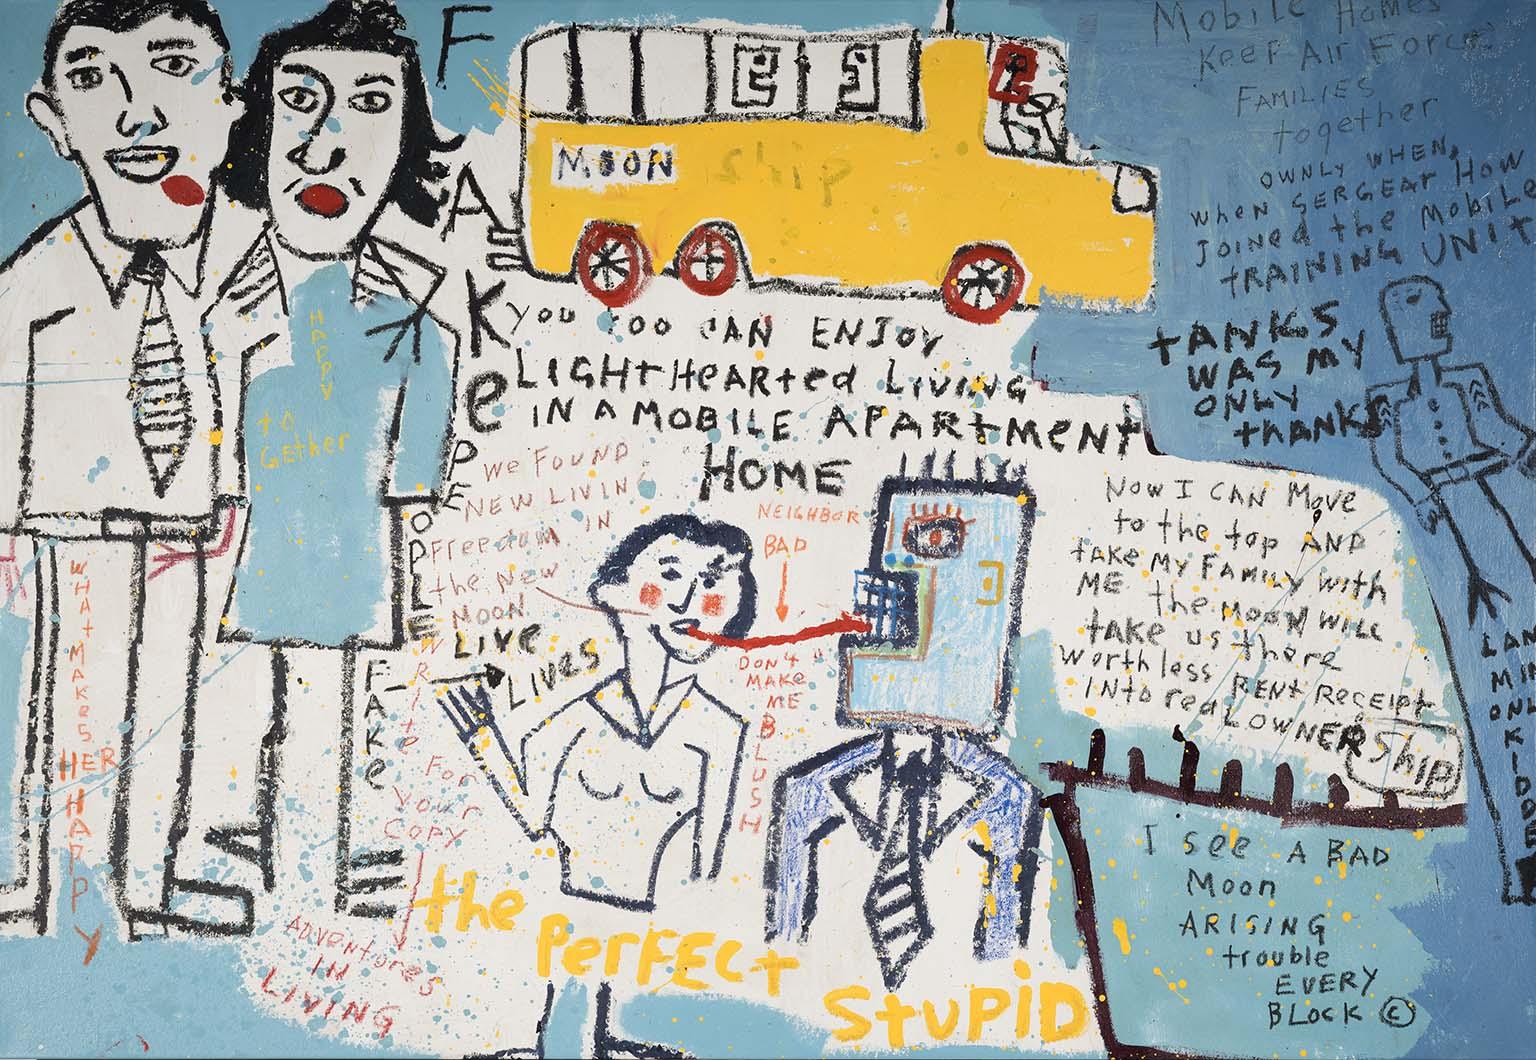 FAKe
PEOPLE
FAKe
MOON Ship
Mobile Homes
Keep Air Force
FAMILIES
together
OWNLY WHEN,
when SERGEAT HOW
JOINED the MOBILE
tRAINING UNIT
tANKS
WAS MY
ONLY
tHANKS
YOU TOO CAN ENJOY
LIGHtHeARted LIVING
IN A MOBILE APARtMENT
HOME
HAPPY
to
Gether
WHAt MAKeS HER HAPPY
We FOUND
NEW LIVING
FReedom IN
the New
MOON
LIVE
LIVES
WRITO
For
Your
COPY
ADVENtures
IN
LIVING
NEIGHBOR
BAD
DON't
MAKe
ME
BLUSH
the PerFECt StUPiD
NOW I CAN MOVe
to the top AND
tAKE MY FAMILY with
ME the MOON WILL
tAKe us there
Worthless RENt Receipt
INto reaL OWNER Ship
I see A BAD
Moon
ARISING
trouble
EVERY
BLock ©
ONL